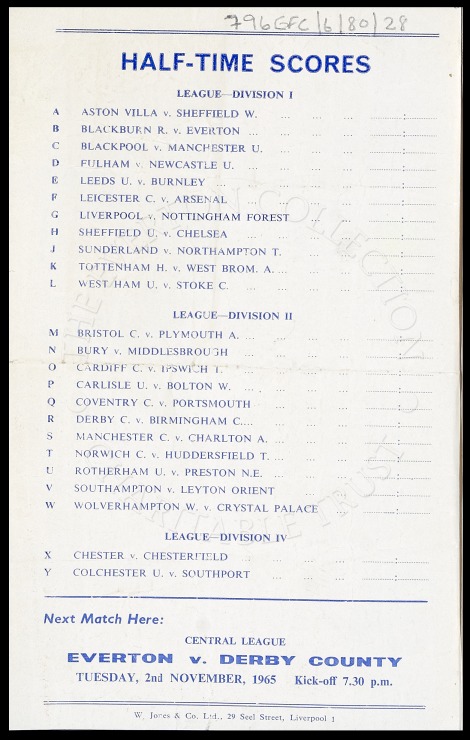 796EFC/6/80/28
HALF-TIME SCORES
LEAGUE—DIVISION I
A ASTON VILLA v. SHEFFIELD W. ... ... ... :
B BLACKBURN R. v. EVERTON ... ... ... ... :
C BLACKPOOL v. MANCHESTER U. ... ... ... :
D FULHAM v. NEWCASTLE U. ... ... ... :
E LEEDS U. v. BURNLEY ... ... ... ... :
F LEICESTER C. v. ARSENAL ... ... ... :
G LIVERPOOL v. NOTTINGHAM FOREST ... ... :
H SHEFFIELD U. v. CHELSEA ... ... ... :
J SUNDERLAND v. NORTHAMPTON T. ... ... :
K TOTTENHAM H. v. WEST BROM. A. ... ... ... :
L WEST HAM U. v. STOKE C. ... ... ... :
LEAGUE—DIVISION II
M BRISTOL C. v. PLYMOUTH A. ... ... ... :
N BURY v. MIDDLESBROUGH ... ... ... :
O CARDIFF C. v. IPSWICH T. ... ... ... :
P CARLISLE U. v. BOLTON W. ... ... ... :
Q COVENTRY C. v. PORTSMOUTH ... ... ... :
R DERBY C. v. BIRMINGHAM C.... ... ... :
S MANCHESTER C. v. CHARLTON A. ... ... ... :
T NORWICH C. v. HUDDERSFIELD T. ... ... ... :
U ROTHERHAM U. v. PRESTON N.E. ... ... ... :
V SOUTHAMPTON v. LEYTON ORIENT ... ... :
W WOLVERHAMPTON W. v. CRYSTAL PALACE ... :
LEAGUE—DIVISION IV
X CHESTER v. CHESTERFIELD ... ... ... :
Y COLCHESTER U. v. SOUTHPORT ... ... ... :
Next Match Here:
CENTRAL LEAGUE
EVERTON v. DERBY COUNTY
TUESDAY, 2nd NOVEMBER, 1965 Kick-off 7.30 p.m.
W. Jones & Co. Ltd., 29 Seel Street, Liverpool 1